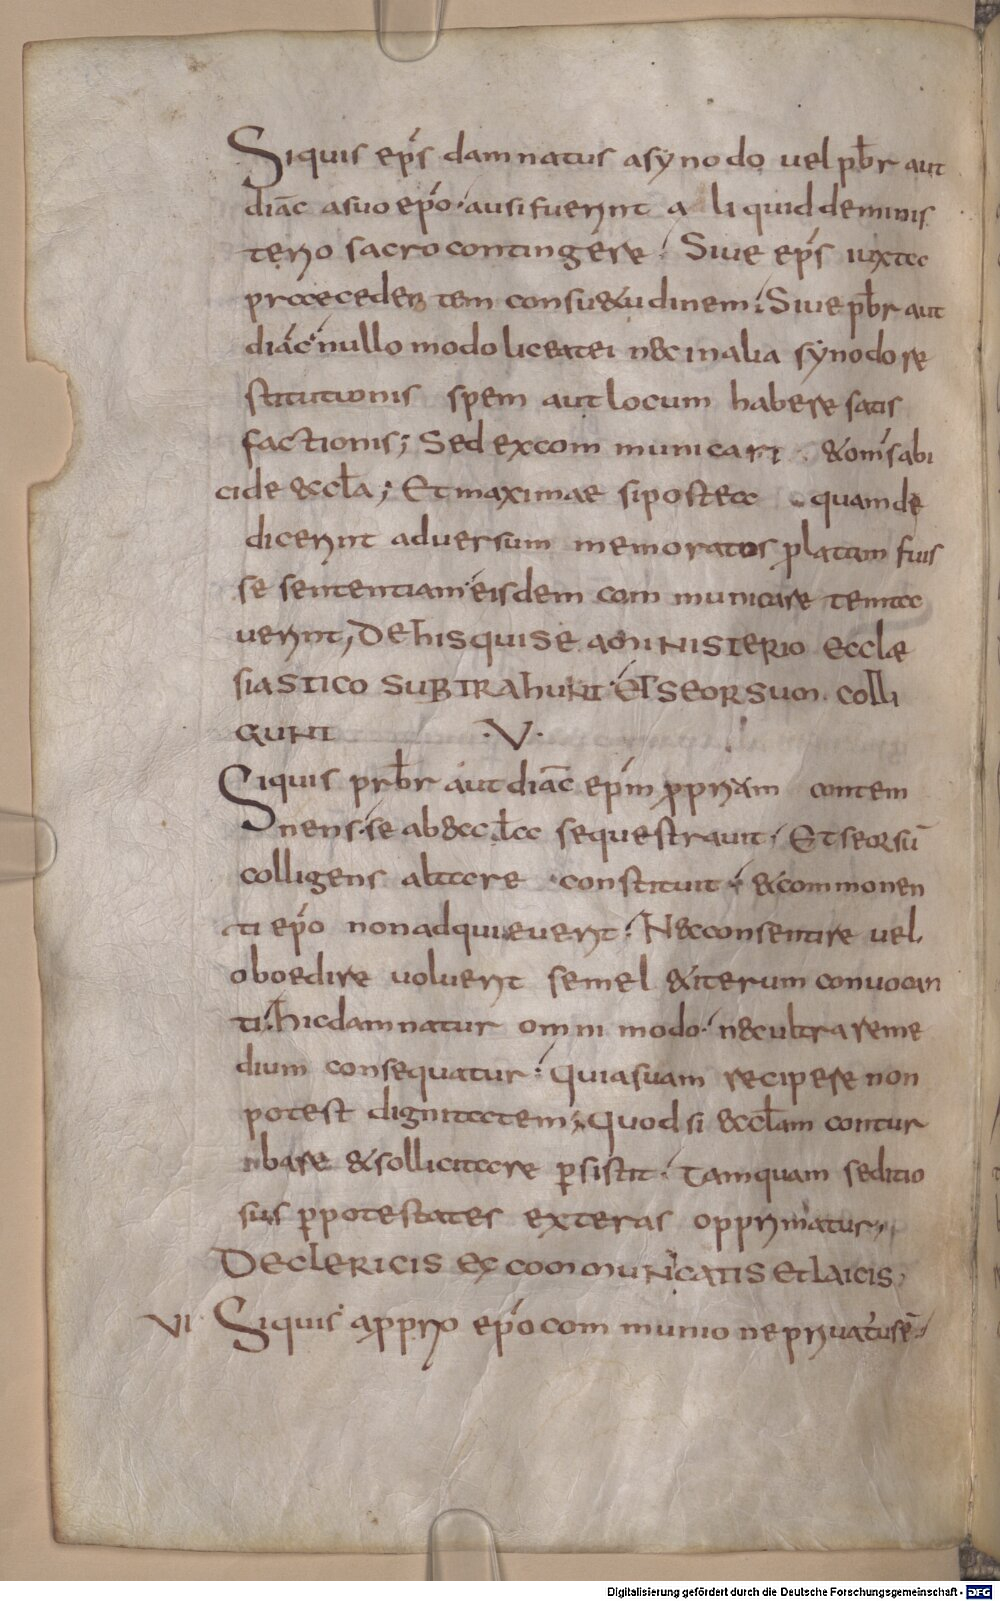 Siquis ep̄s damnatus asynodo uel pb̄r aut
diāc asuo ep̄o · ausifuerint a liquid deminis
terio sacro contingere · Siue ep̄s iuxta
praecedentem consu&udinem; Siue pb̄r aut
diāc nullo modo liceat ei nec in alia synodo re
stitutionis spem aut locum habere satis
factionis; Sed excommunicari &om̄s abi
cide eccl̄a; Et maximae siposteaquam de
dicerint aduersum memoratos p̄latam fuis
se sententiam eisdem communicare temta
uerint; De his qui se aministerio eccle
siastico subtrahunt et seorsum colli
gunt ·V·
Siquis prb̄r aut diāc ep̄m p̄prium contem
nens · se abaeccl̄a sequestrauit · Et seorsū
colligens altare · constituit · &commonen
ti ep̄o non adquieuerit · Nec consentire uel
oboedire uoluerit semel &iterum conuocan
ti · hic damnatur omni modo · nec ultra reme
dium consequatur · Quia suam recipere non
potest dignitatem; Quod si aeccl̄am contur
bare &sollicitare p̄sistit · Tamquam seditio
sus p̄potestates exteras opprimatur;
De clericis excommunicatis et laicis;
VI Siquis apprio ep̄o communione priuatusē
Digitalisierung gefördert durch die Deutsche Forschungsgemeinschaft - DFG